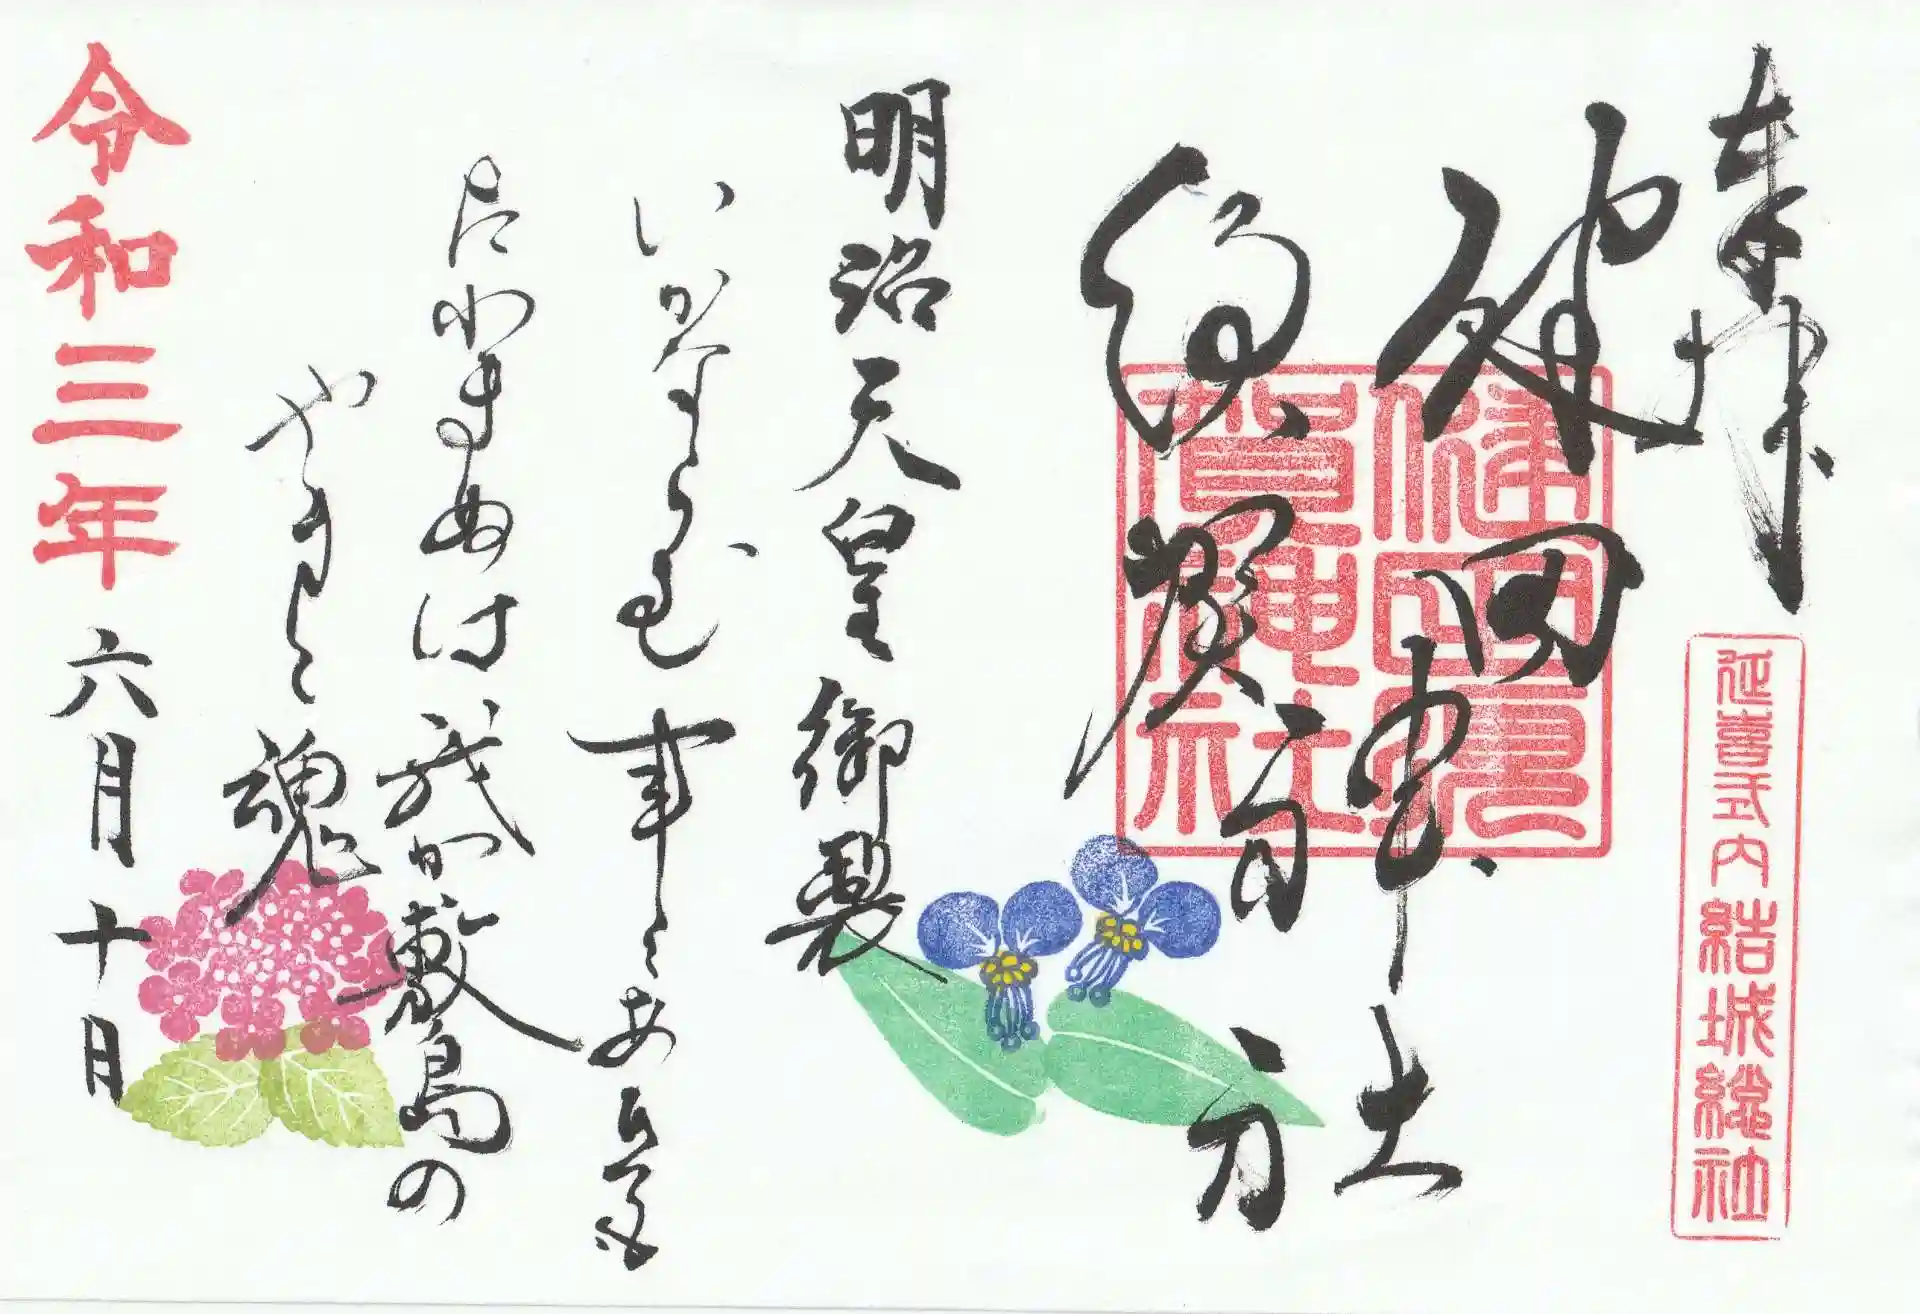 奉拝
延喜式内 結城総社
健田神社
須賀
健田須
賀神社
明治天皇御製
いかならむ事にあひても
たわまぬは我か敷島の
やまと魂
令和三年六月十日